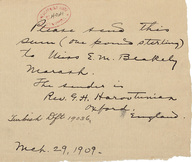 Please send this
sum (one pound sterling)
to Miss E. M. Blakely
Marash.
The sender is
Rev. G. H. Haroutunian
Oxford.
England.
Turkish Dft
Mch. 29, 1909.